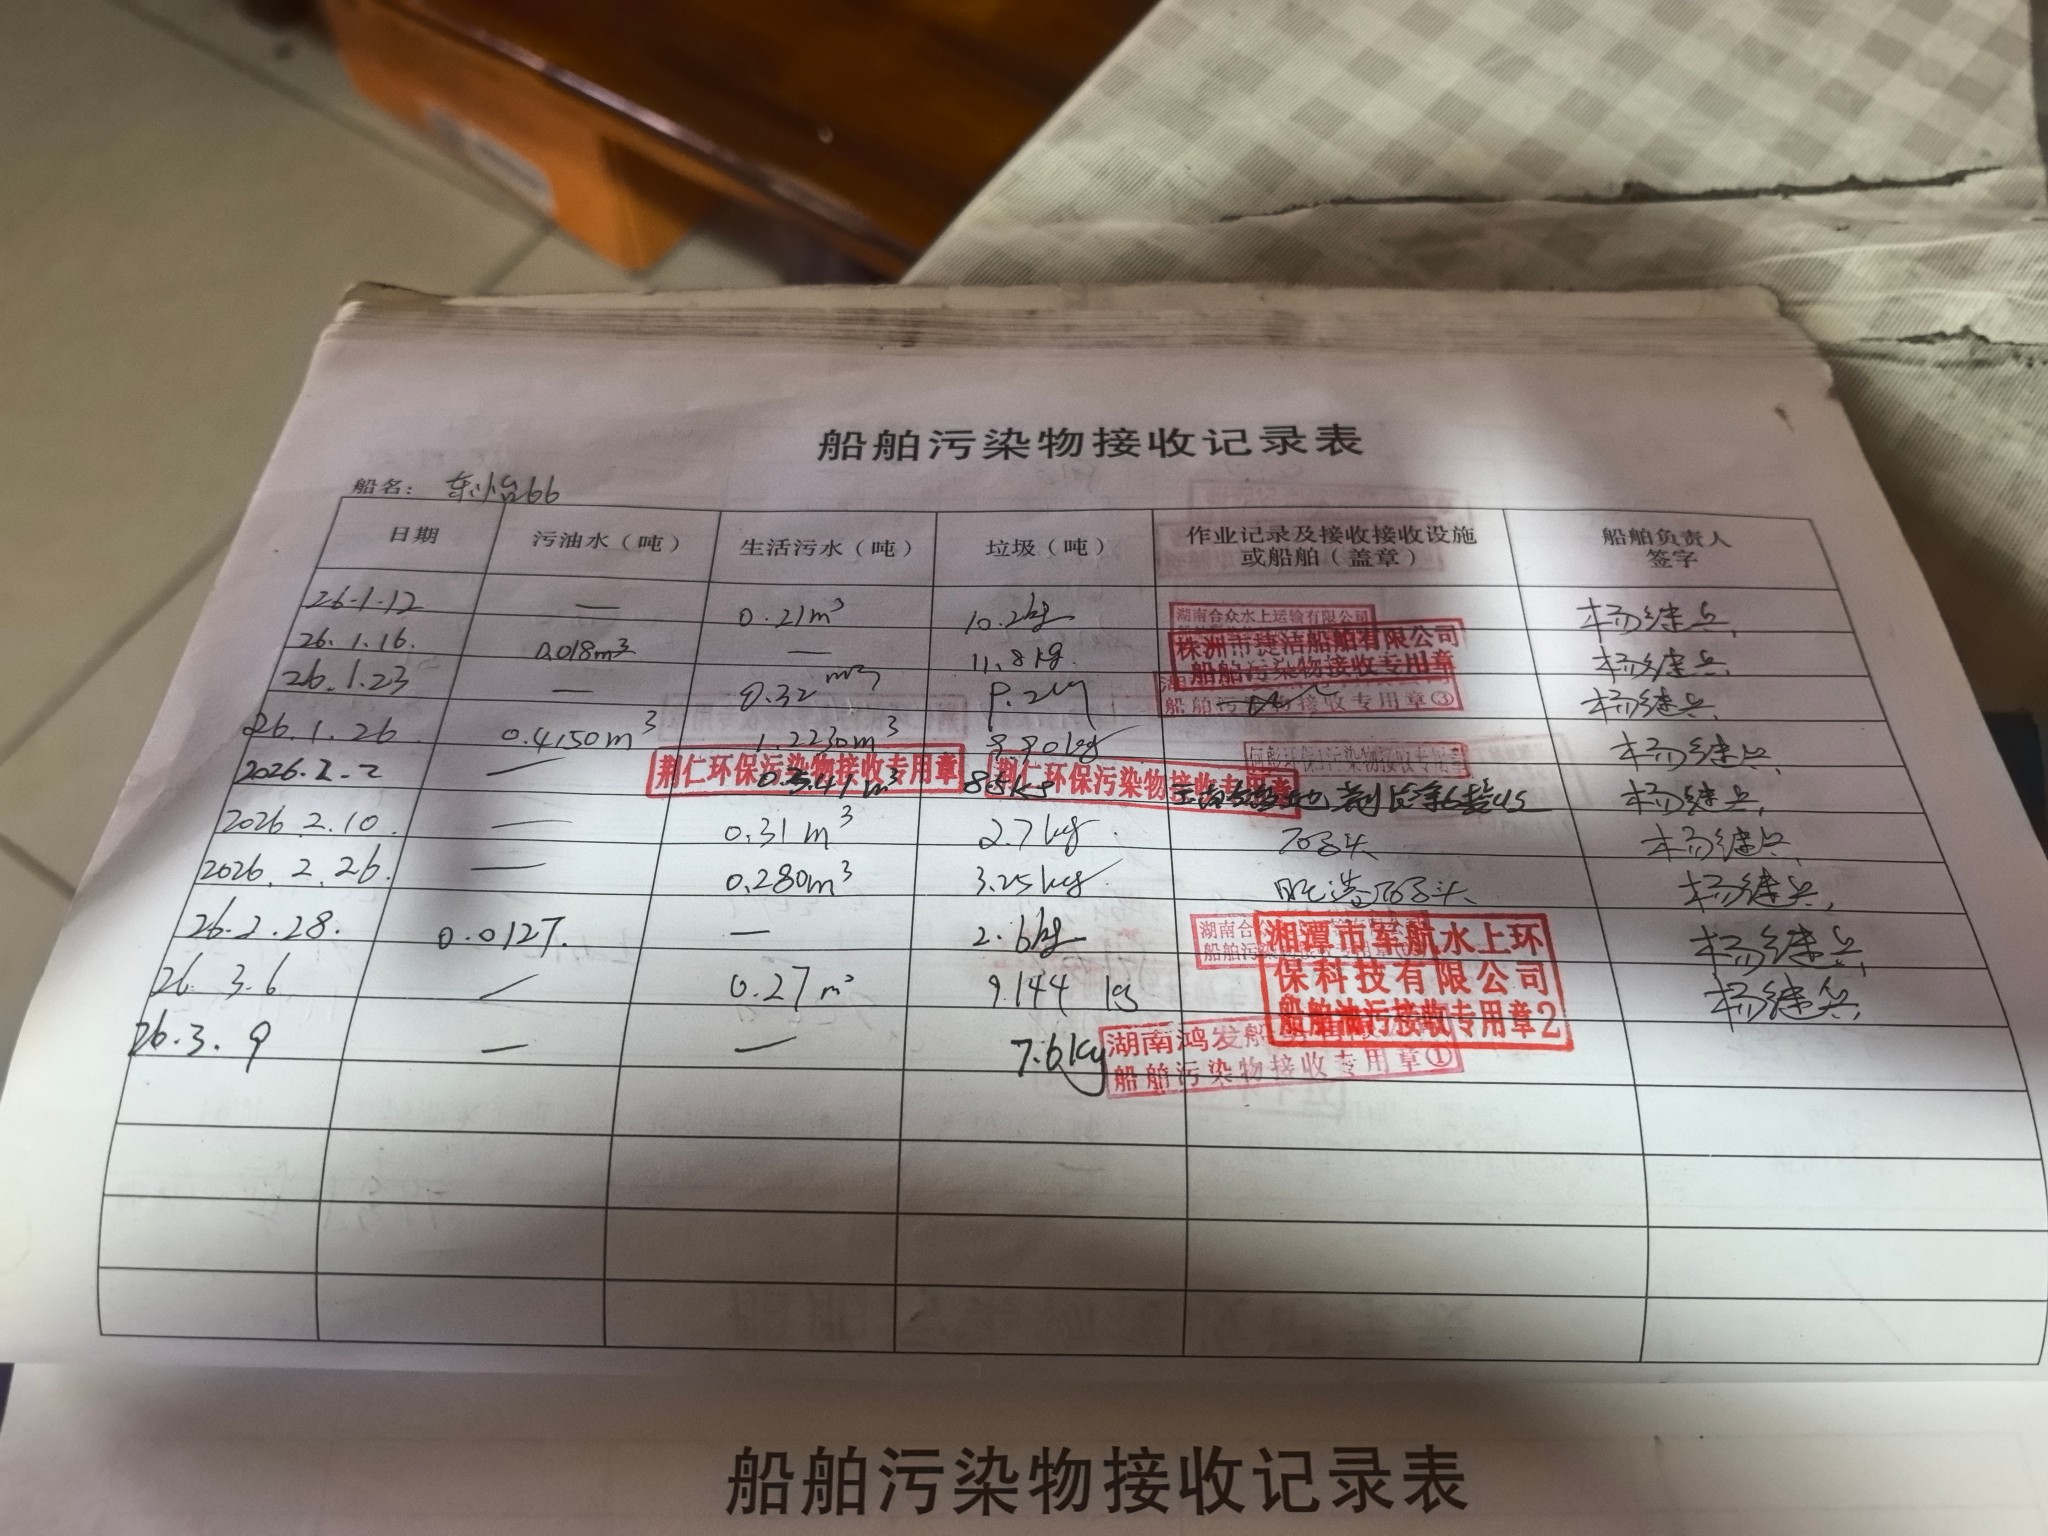 船舶污染物接收记录表
船名: 66
日期 污油水（吨） 生活污水（吨） 垃圾（吨） 作业记录及接收接收设施或船舶（盖章） 船舶负责人签字
26.1.12 — 0.21m³ 10.2kg 湖南合众水上运输有限公司 杨继兵
26.1.16. 0.018m³ — 11.8kg. 株洲市捷洁船舶有限公司 船舶污染物接收专用章 杨继兵
26.1.23 — 0.32m³ 9.2kg 船舶污染物接收专用章③ 杨继兵
26.1.26. 0.4150m³ 1.2230m³ 8.80kg 环保污染物接收专用章 杨继兵
2026.2.2 — m³ 荆仁环保污染物接收专用章 荆仁环保污染物接收专用章 杨继兵
2026.2.10. — 0.31m³ 2.7kg. 码头 杨继兵
2026.2.26. — 0.280m³ 3.25kg. 码头 杨继兵
26.2.28. 0.0127. — 2.6kg 湘潭市军航水上环保科技有限公司 船舶油污接收专用章2 杨继兵
26.3.6 — 0.27m³ 9.144kg 杨继兵
26.3.9 — — 7.6kg 湖南鸿发船 船舶污染物接收专用章①
船舶污染物接收记录表